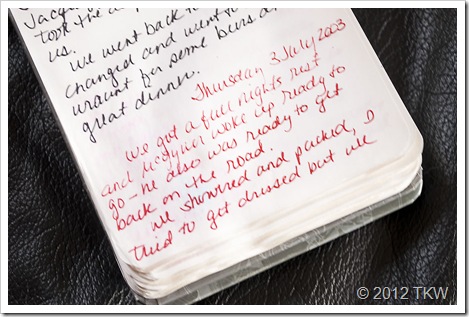 Jacqu
took the a
us.
We went back to
changed and went to
uraunt for some beers a
great dinner.
Thursday 3 July 2003
We got a full nights rest
and McGyver woke up ready to
go - he also was ready to get
back on the road.
We showered and packed, I
tried to get dressed but we
© 2012 TKW